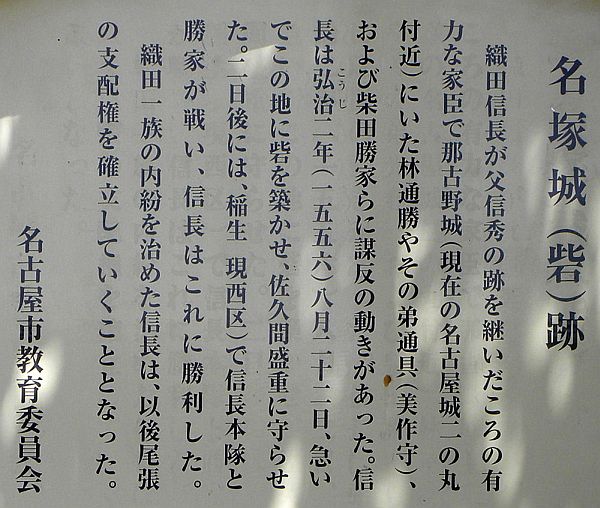 名塚城（砦）跡
織田信長が父信秀の跡を継いだころの有
力な家臣で那古野城（現在の名古屋城二の丸
付近）にいた林通勝やその弟通具（美作守）、
および柴田勝家らに謀反の動きがあった。信
長は弘治二年（一五五六）八月二十二日、急い
こうじ
でこの地に砦を築かせ、佐久間盛重に守らせ
た。二日後には、稲生 現西区）で信長本隊と
勝家が戦い、信長はこれに勝利した。
織田一族の内紛を治めた信長は、以後尾張
の支配権を確立していくこととなった。
名古屋市教育委員会